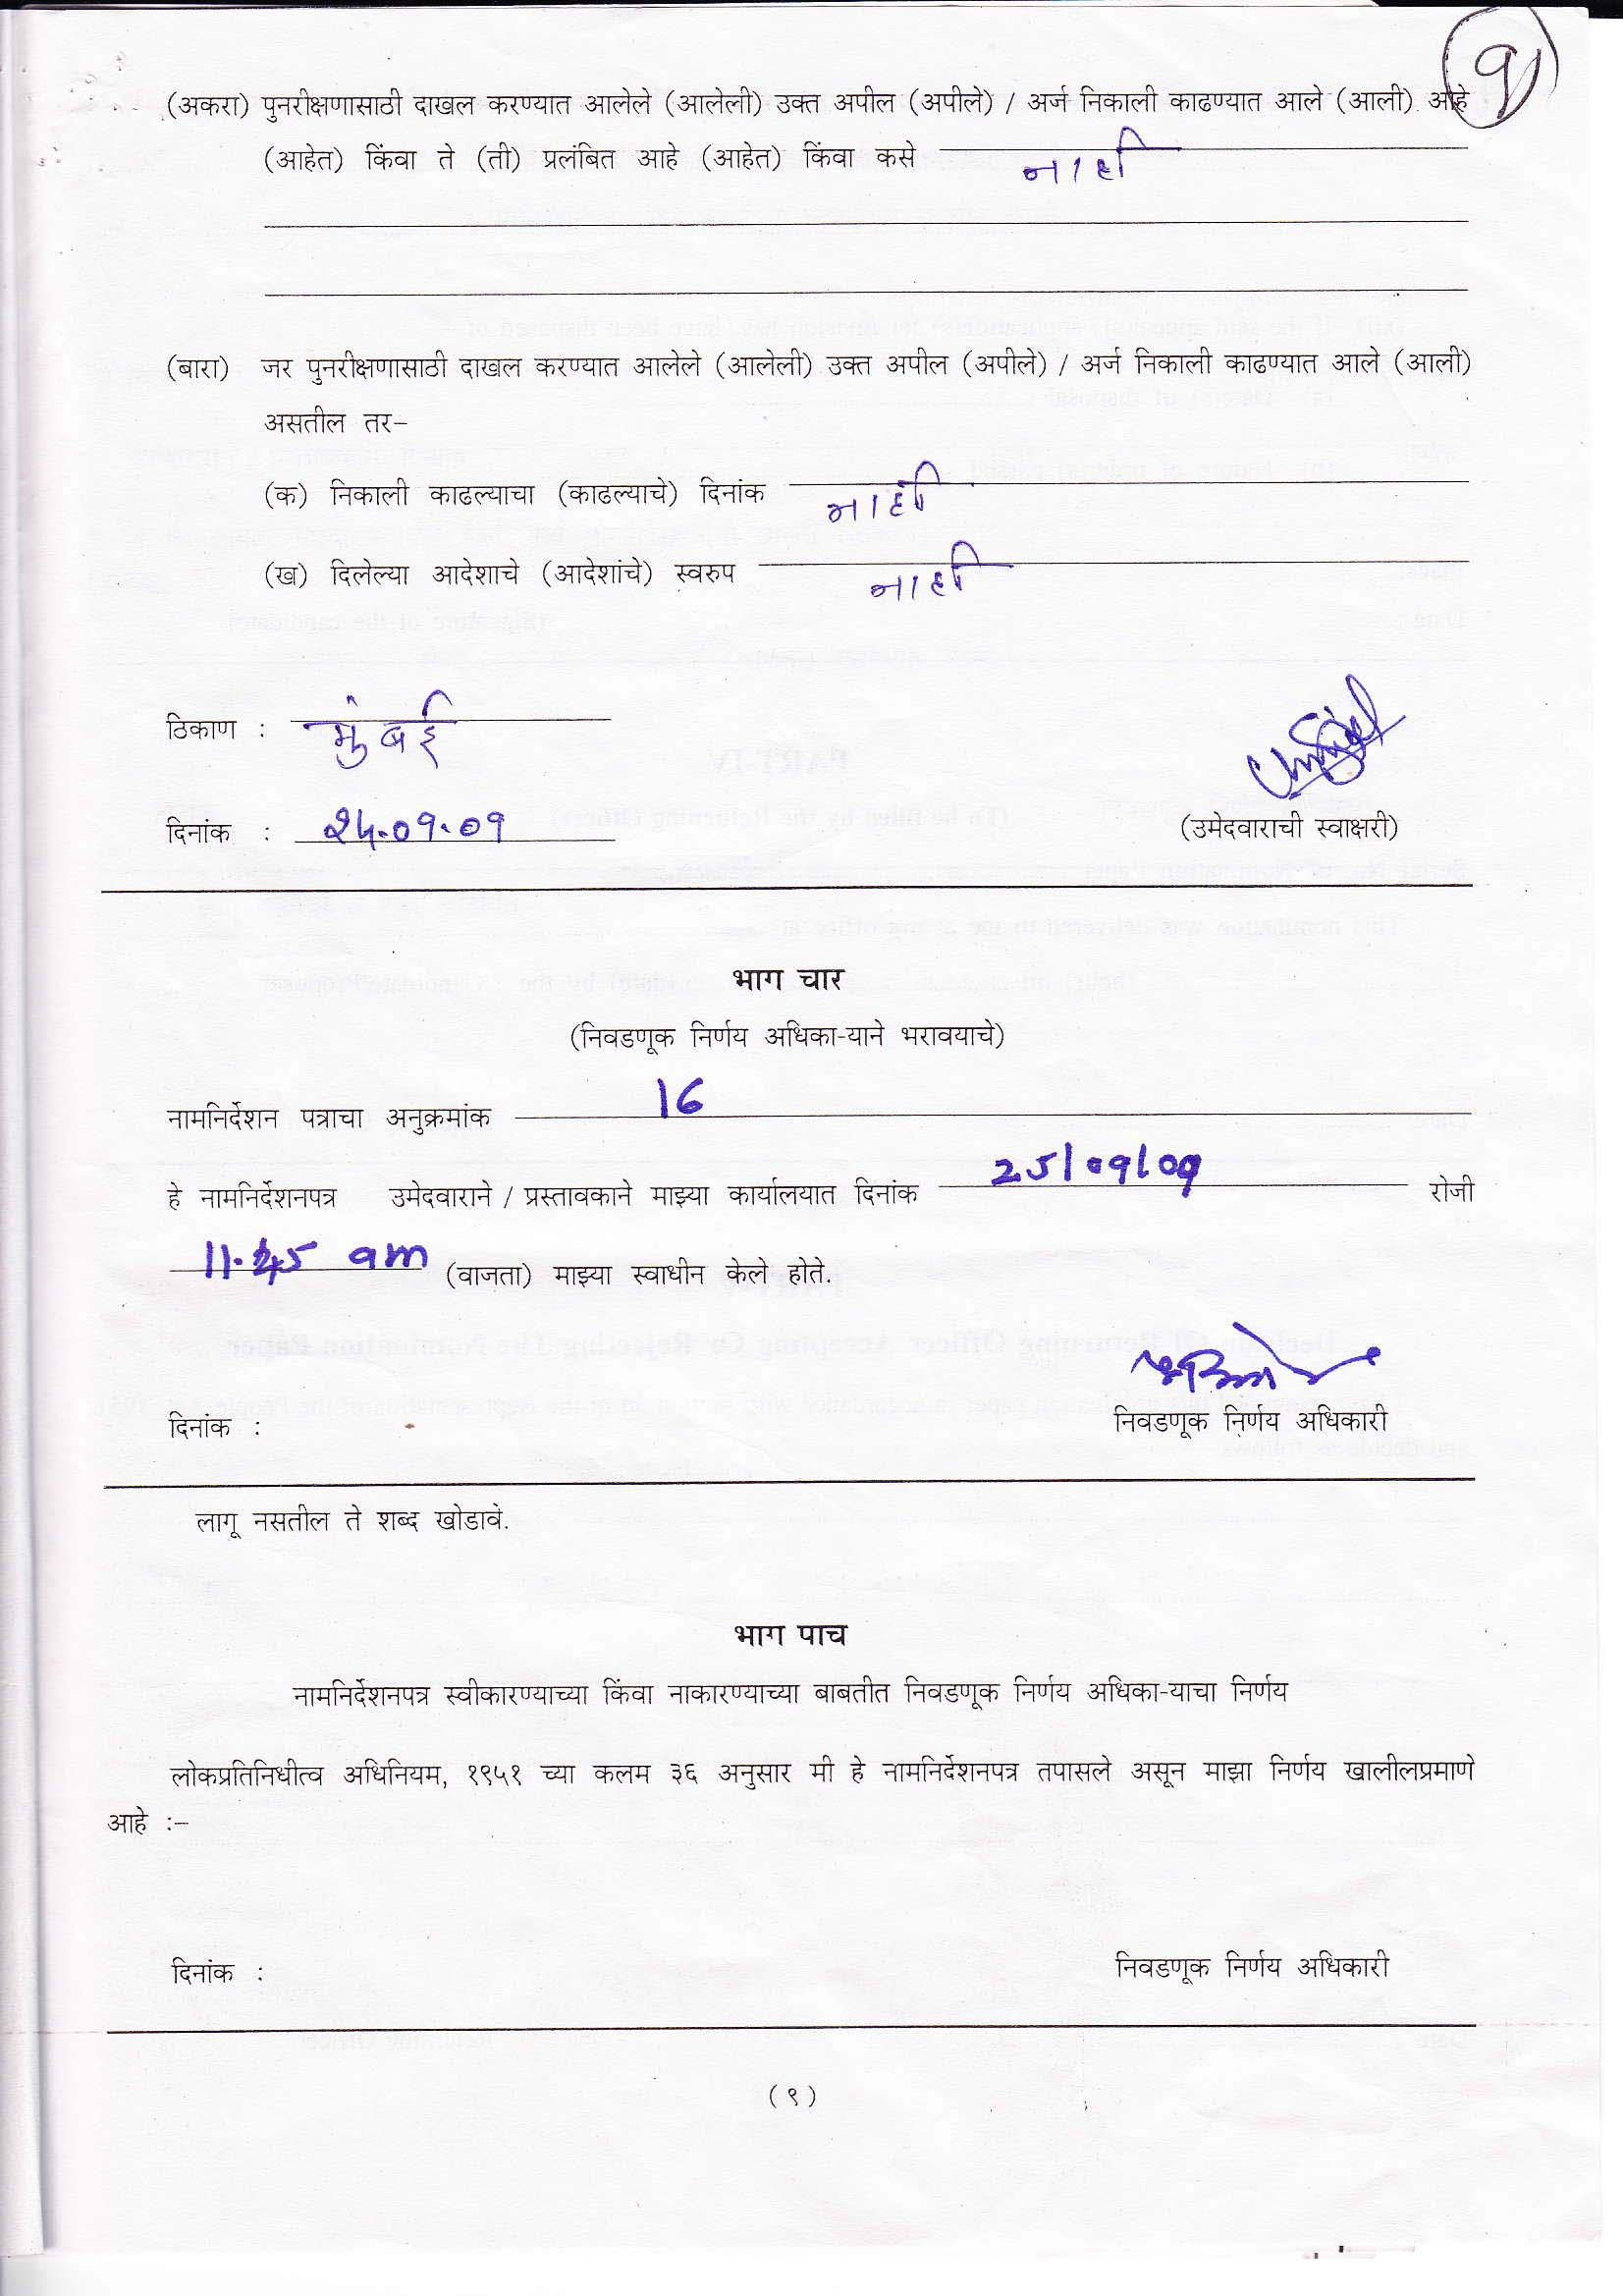 ९
(अकरा) पुनरीक्षणासाठी दाखल करण्यात आलेले (आलेली) उक्त अपील (अपीले) / अर्ज निकाली काढण्यात आले (आली) आहे
(आहेत) किंवा ते (ती) प्रलंबित आहे (आहेत) किंवा कसे नाही
(बारा) जर पुनरीक्षणासाठी दाखल करण्यात आलेले (आलेली) उक्त अपील (अपीले) / अर्ज निकाली काढण्यात आले (आली)
असतील तर-
(क) निकाली काढल्याचा (काढल्याचे) दिनांक नाही
(ख) दिलेल्या आदेशाचे (आदेशांचे) स्वरुप नाही
ठिकाण : मुंबई
दिनांक : २५.०९.०९ (उमेदवाराची स्वाक्षरी)
भाग चार
(निवडणूक निर्णय अधिका-याने भरावयाचे)
नामनिर्देशन पत्राचा अनुक्रमांक 16
हे नामनिर्देशनपत्र उमेदवाराने / प्रस्तावकाने माझ्या कार्यालयात दिनांक 25/09/09 रोजी
11.45 am (वाजता) माझ्या स्वाधीन केले होते.
दिनांक : निवडणूक निर्णय अधिकारी
लागू नसतील ते शब्द खोडावे.
भाग पाच
नामनिर्देशनपत्र स्वीकारण्याच्या किंवा नाकारण्याच्या बाबतीत निवडणूक निर्णय अधिका-याचा निर्णय
लोकप्रतिनिधीत्व अधिनियम, १९५१ च्या कलम ३६ अनुसार मी हे नामनिर्देशनपत्र तपासले असून माझा निर्णय खालीलप्रमाणे
आहे :-
दिनांक : निवडणूक निर्णय अधिकारी
(९)